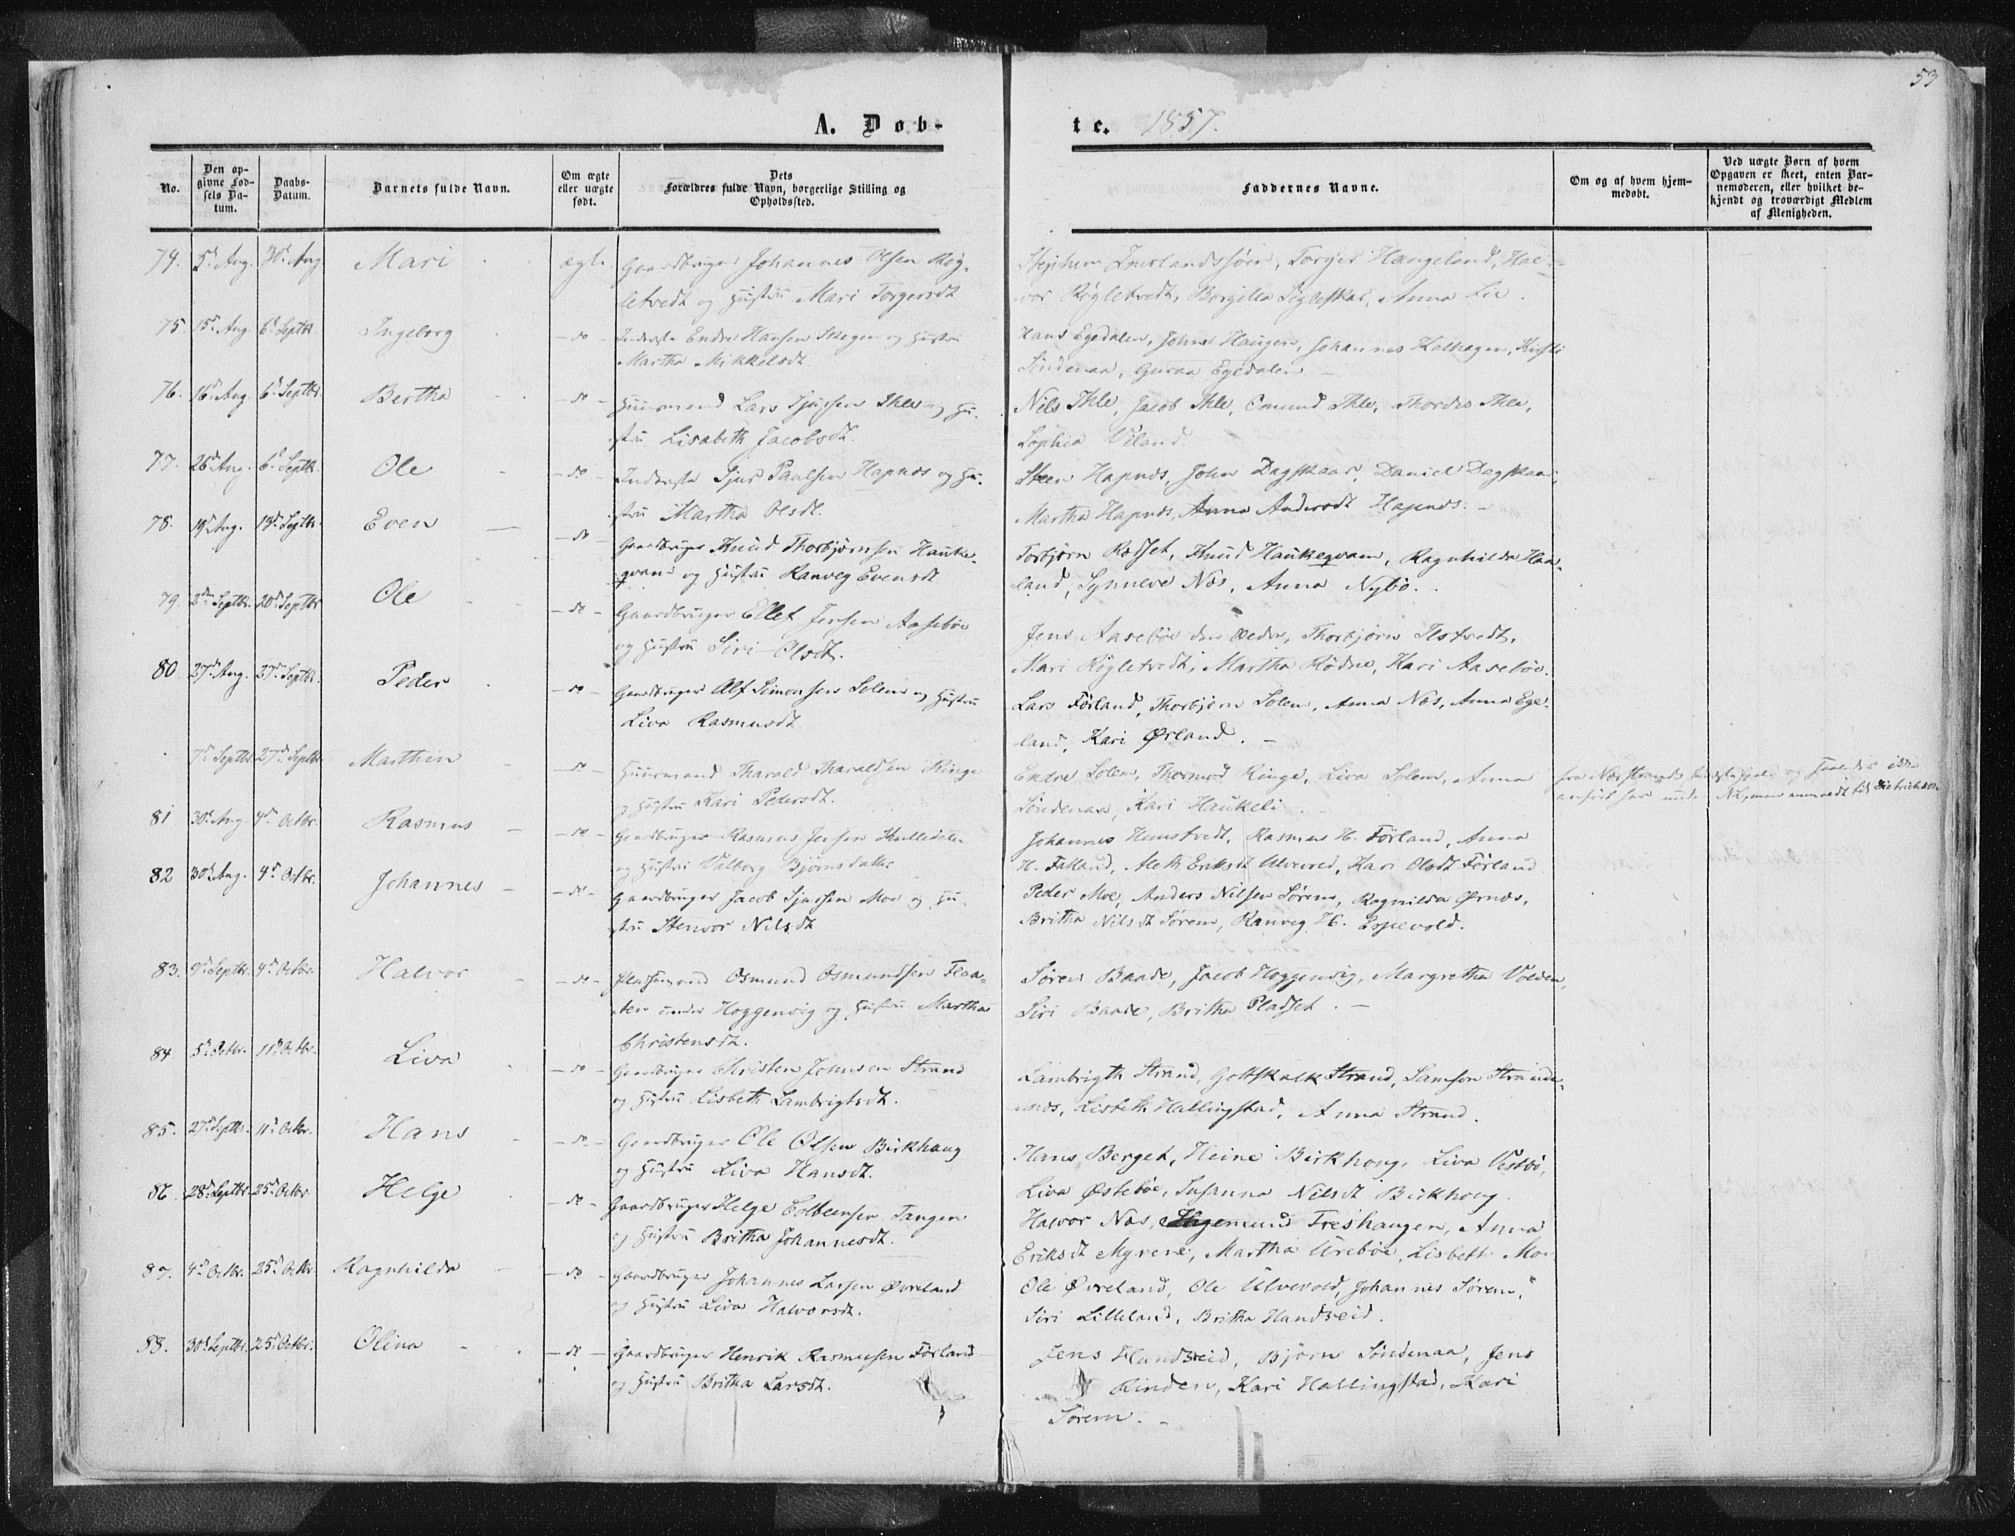 53
A. Døb-
te. 1857.
No.
Den opgivne Fødsels Datum.
Daabs-Datum.
Barnets fulde Navn.
Om ægte eller uægte født.
Dets Forældres fulde Navn, borgerlige Stilling og Opholdssted.
Faddernes Navne.
Om og af hvem hjemmedøbt.
Ved uægte Børn af hvem Opgaven er skeet, enten Barnemoderen, eller hvilket bekjendt og troværdigt Medlem af Menigheden.
74. 5te Aug. 30te Aug. Mari ægte. Gaardbruger Johannes Olsen Røg-
letvedt og Hustru Mari Torgersdt
Torger Haugeland, Hal-
vor Rögletvedt, Anna Lie.
75. 15de Aug. 6te Septbr. Ingeborg - do - Inderste Endre Hansen og Hustru
Martha Mikkelsdt
Hans Egedalen, Johannes Kalhagen, Kirsti
Söndenaa, Guroa Egedalen -
76. 16de Aug. 6te Septbr. Bertha - do - Huusmand Lars Sjursen Ihle og Hu-
stru Lisabeth Jacobsdt.
Nils Ihle, Jacob Ihle, Omund Ihle, Thordis Ihle,
Sophia Viland.
77. 26de Aug. 6te Septbr. Ole - do - Inderste Sjur Paulsen Hapnæs og Hu-
stru Martha Olsdt.
Steen Hapnæs, John Dagskaar, Daniel Dagskaar,
Martha Hapnæs, Anna Andersdt Hapnæs. -
78. 19de Aug. 13de Septbr. Even - do - Gaardbruger Knud Thorbjørnsen Hauke-
qvam og Hustru Ranveg Evensdt
Torbjørn Rødset, Knud Haukeqvam, Ragnhilda Haa-
land, Synneve Næs, Anna Nybö.
79. 2den Septbr. 20de Septbr Ole - do - Gaardbruger Ellef Jensen Aasebøe
og Hustru Siri Olsdt.
Jens Aasebøe den Ældre, Thorbjørn Testvedt,
Mari Røgletvedt, Martha Rødne, Kari Aasebøe.
80. 27de Aug. 27de Septbr. Peder - do - Gaardbruger Alf Simonsen Solem og Hustru
Liva Rasmusdt.
Lars Førland, Thorbjørn Solem, Anna Næs, Anna Ege-
land, Kari Ørland. -
7de Septbr. 27de Septbr Marthin - do - Huusmand Tharald Tharaldsen Ringe
og Hustru Kari Pedersdt.
Endre Solem, Thormod Ringe, Liva Solem, Anna
Söndenaa, Kari Haukeli.
fra Nærstrands Præstegjeld og
81 30te Aug. 4de Octbr. Rasmus - do - Gaardbruger Rasmus Jensen
og Hustru Valborg Bjørnsdatter
Johannes Hunstvedt, Rasmus H. Førland, Anna
H. Falland, Meth Eriksdt Ulvevold, Kari Olsdt Førland
82 30te Aug. 4de Octbr. Johannes - do - Gaardbruger Jacob Sjursen Moe og Hu-
stru Stenvor Nilsdt
Peder Moe, Anders Nilsen Sørem, Ragnilda Ørnæs,
Britha Nilsdt Sørem, Ranveg H. Espevold.
83. 9de Septbr. 4de Octbr. Halvor - do - Pladsmand Osmund Osmundsen Flaa-
ten under Hoggenvig og Hustru Martha
Christensdt.
Søren Baade, Jacob Hoggenvig, Margretha Volden,
Siri Baade, Britha Pladset. -
84. 5te Octbr. 11te Octbr. Liva - do - Gaardbruger Christen Johnsen Strand
og Hustru Lisbeth Lambrigtsdt.
Lambrigth Strand, Gottskalk Strand, Samson Strande-
næs, Lisbeth Hallingstad, Anna Strand.
85. 27de Septbr. 11te Octbr. Hans - do - Gaardbruger Ole Olsen Birkhaug
og Hustru Liva Hansdt.
Hans Berget, Heine Birkhoug, Liva Vestbö,
Liva Østebøe, Susanna Nilsdt Birkhoug.
86 28de Septbr 25de Octbr. Helge - do - Gaardbruger Helge Colbeensen Tangen
og Hustru Britha Johannesdt.
Halvor Næs, Ingemund Treshaugen, Anna
Eriksdt Myrene, Martha Urebøe, Lisbeth Moe
87. 4de Octbr. 25de Octbr. Ragnhilda - do - Gaardbruger Johannes Larsen Øvreland
og Hustru Liva Halvorsdt.
Ole Øvreland, Ole Ulvevold, Johannes Sørem,
Siri Lilleland, Britha Hundseid.
88. 30te Septbr. 25de Octbr. Olina - do - Gaardbruger Henrik Rasmusen Førland
og Hustru Britha Larsdt.
Jens Hundseid, Bjørn Söndenaa, Jens
Rinden, Kari Hallingstad, Kari
Sørem. -